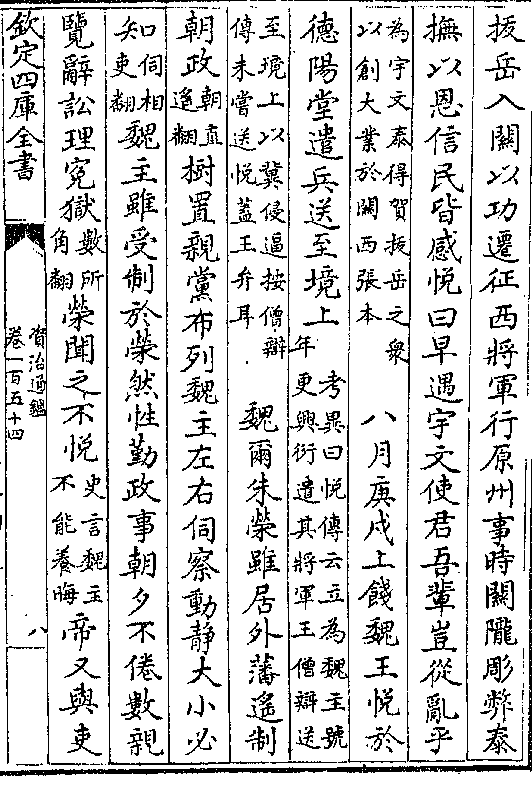 拔岳入關以功遷征西將軍行原州事時關隴彫弊泰
撫以恩信民皆感悅曰早遇宇文使君吾輩豈從亂乎
為宇文泰得賀拔岳之衆以創大業於關西張本 八月庚戌上餞魏王悅於
德陽堂遣兵送至境上 考異曰悅傳云立為魏主號年更興衍遣其將軍王僧辯送
至境上以冀侵逼按僧辯傳未嘗送悅蓋王弁耳 魏爾朱榮雖居外藩遙制
朝政朝直遙翻樹置親黨布列魏主左右伺察動靜大小必
知伺相吏翻魏主雖受制於榮然性勤政事朝夕不倦數親
覽辭訟理冤獄數所角翻榮聞之不悅史言魏主不能養晦帝又與吏
欽定四庫全書
資治通鑑
卷一百五十四
八